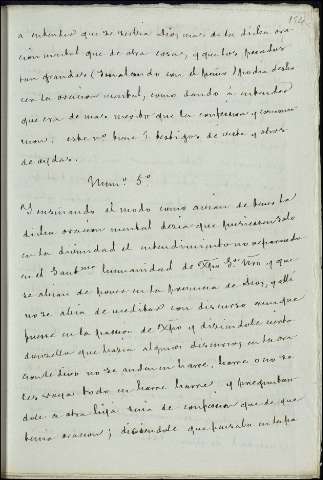 154
a entender que se servia Dios mas de la dicha ora-
cion mental que de otra cosa, y que los pecados
tan grandes (señalando con el puño) podia desha-
cer la oracion mental, como dando à entender
que era de mas merito que la confesion y comu-
nion: este nº tiene 3 testigos de vista y otros
de oidas.
Numº 5º
Y enseñando el modo como avian de tener la
dicha oracion mental decia que pusiesen solo
en la divinidad el entendimiento no reparando
en el Santmo humanidad de Xpto Sr. Nro y que
se avian de poner en la presencia de Dios, y alli
no se avia de meditar con discurso aunque
fuese en la passion de Xpto y diciendole cierta
doncella que hacia algunos discursos en la ora-
cion le dixo no se ande en harre, harre o no se
les vaya todo en harre harre y preguntan-
dole a otra hija suya de confesion que de que
tenia oracion; diciendole que pensaba en la pa-